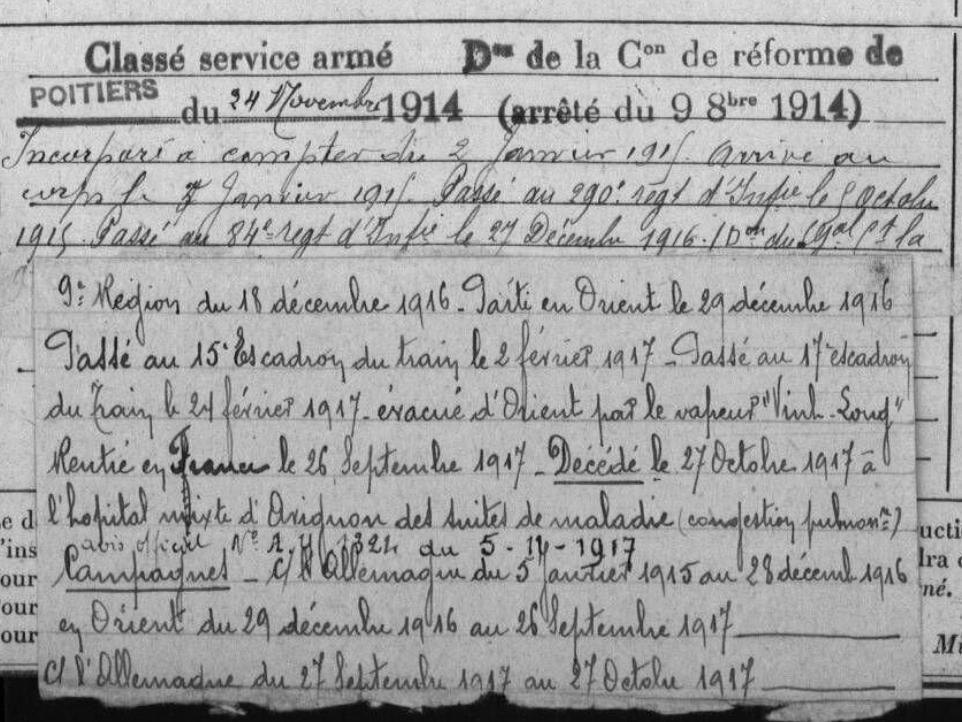 Classé service armé Dᵒⁿ de la Cᵒⁿ de réforme de
POITIERS du 24 Novembre 1914 (arrêté du 9 8ᵇʳᵉ 1914)
Incorporé à compter du 2 Janvier 1915. Arrivé au
corps le Janvier 1915. Passé au 290ᵉ regt d'Infie le 5 Octobre
1915. Passé au 84ᵉ regt d'Infie le 27 Décembre 1916. (Dᵒⁿ du Gᵃˡ Cᵗ la
9ᵉ Région du 18 décembre 1916 - Parti en Orient le 29 décembre 1916
Passé au 15ᵉ Escadron du train le 2 février 1917 - Passé au 17ᵉ escadron
du Train le 24 février 1917 - évacué d'Orient par le vapeur "Vinh-Long"
Rentré en France le 26 Septembre 1917 - Décédé le 27 Octobre 1917 à
l'hopital mixte d'Avignon des suites de maladie (congestion pulmonʳᵉ)
avis officiel Nᵒ du 5-11-1917
Campagnes - C/ l'Allemagne du 5 Janvier 1915 au 28 décemb 1916
en Orient du 29 décembre 1916 au 26 Septembre 1917
C/ l'Allemagne du 27 Septembre 1917 au 27 Octobre 1917
e d
'ins
our
our
our
ucti
dra
né.